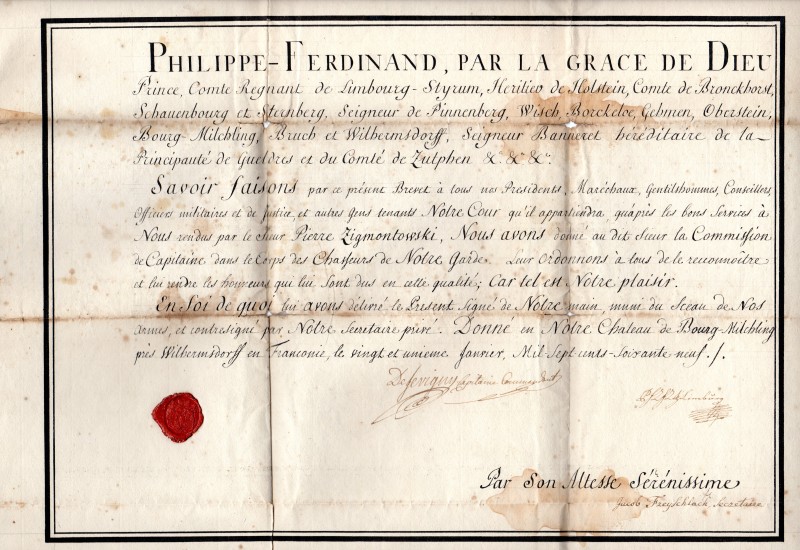 PHILIPPE-FERDINAND, PAR LA GRACE DE DIEU
Prince, Comte Regnant de Limbourg-Styrum, Heritier de Holstein, Comte de Bronckhorst,
Schauenbourg et Sternberg, Seigneur de Pinnenberg, Wisch, Borckeloe, Gehmen, Oberstein,
Bourg-Milchling, Bruch et Wilhermsdorff, Seigneur Banneret héréditaire de la
Principauté de Gueldres et du Comté de Zutphen &. &. &.
Savoir faisons par ce présent Brevet à tous nos Presidents, Maréchaux, Gentilshommes, Conseillers,
Officiers militaires et de Justice, et autres Gens tenants Notre Cour qu'il appartiendra, qu'après les bons Services à
Nous rendus par le Sieur Pierre Zigmontowski, Nous avons donné au dit Sieur la Commission
de Capitaine dans le Corps des Chasseurs de Notre Garde. Leur ordonnons à tous de le reconnoître
et lui rendre les honneurs qui lui sont dus en cette qualité; Car tel est Notre plaisir.
En foi de quoi lui avons délivré le Present signé de Notre main, muni du Sceau de Nos
Armes, et contresigné par Notre Secretaire privé. Donné en Notre Chateau de Bourg-Milchling
près Wilhermsdorff en Franconie, le vingt et unieme Janvier, Mil Sept cents-Soixante neuf./.
Desevigny Capitaine Commandant
Par Son Altesse Sérénissime
Jacob Freyschlach, Secretaire